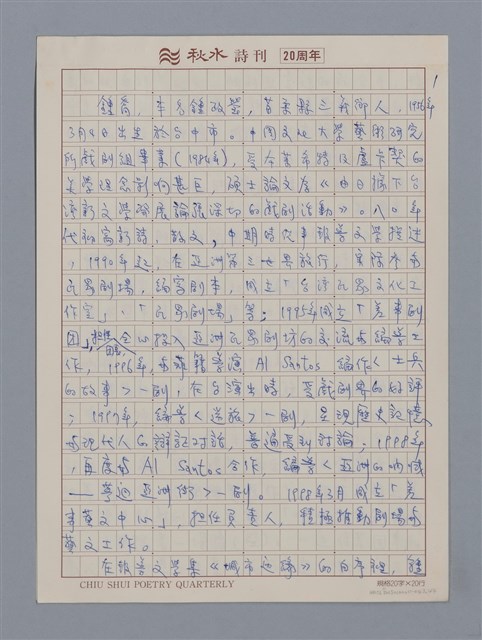 秋水詩刊 20周年
1
鍾喬，本名鍾政瑩，苗栗縣三義鄉人，1956年
3月4日出生於台中市。中國文化大學藝術研究
所戲劇組畢業(1984年)，受布萊希特以及盧卡契的
美學理念影響甚巨，碩士論文為《由日據下台
灣新文學發展論張深切的戲劇活動》。八〇年
代初寫新詩、散文，中期時從事報告文學推進
，1990年起，在亞洲第三世界
民眾劇場，編寫劇本，「台灣民眾文化工
作室」、「民眾劇場」等；1995年成立「差事劇
團」，擔任團長，全心投入亞洲民眾劇場的交流與編導工
作，1996年，與菲籍導演 Al Santos 編作《士兵
的故事》一劇，在台演出時，受戲劇界的好評
；1997年，編導《逃放》一劇，呈現歷史記憶
與現代人的辯証對話，普遍受到討論；1998年
，再度與 Al Santos 合作，編導《亞洲的吶喊
—— 亞洲街》一劇。1998年3月成立「差
事藝文中心」，擔任負責人，積極推動劇場與
藝文工作。
在報告文學集《城市邊緣》的自序裡，鍾
CHIU SHUI POETRY QUARTERLY
稿紙20字×20行